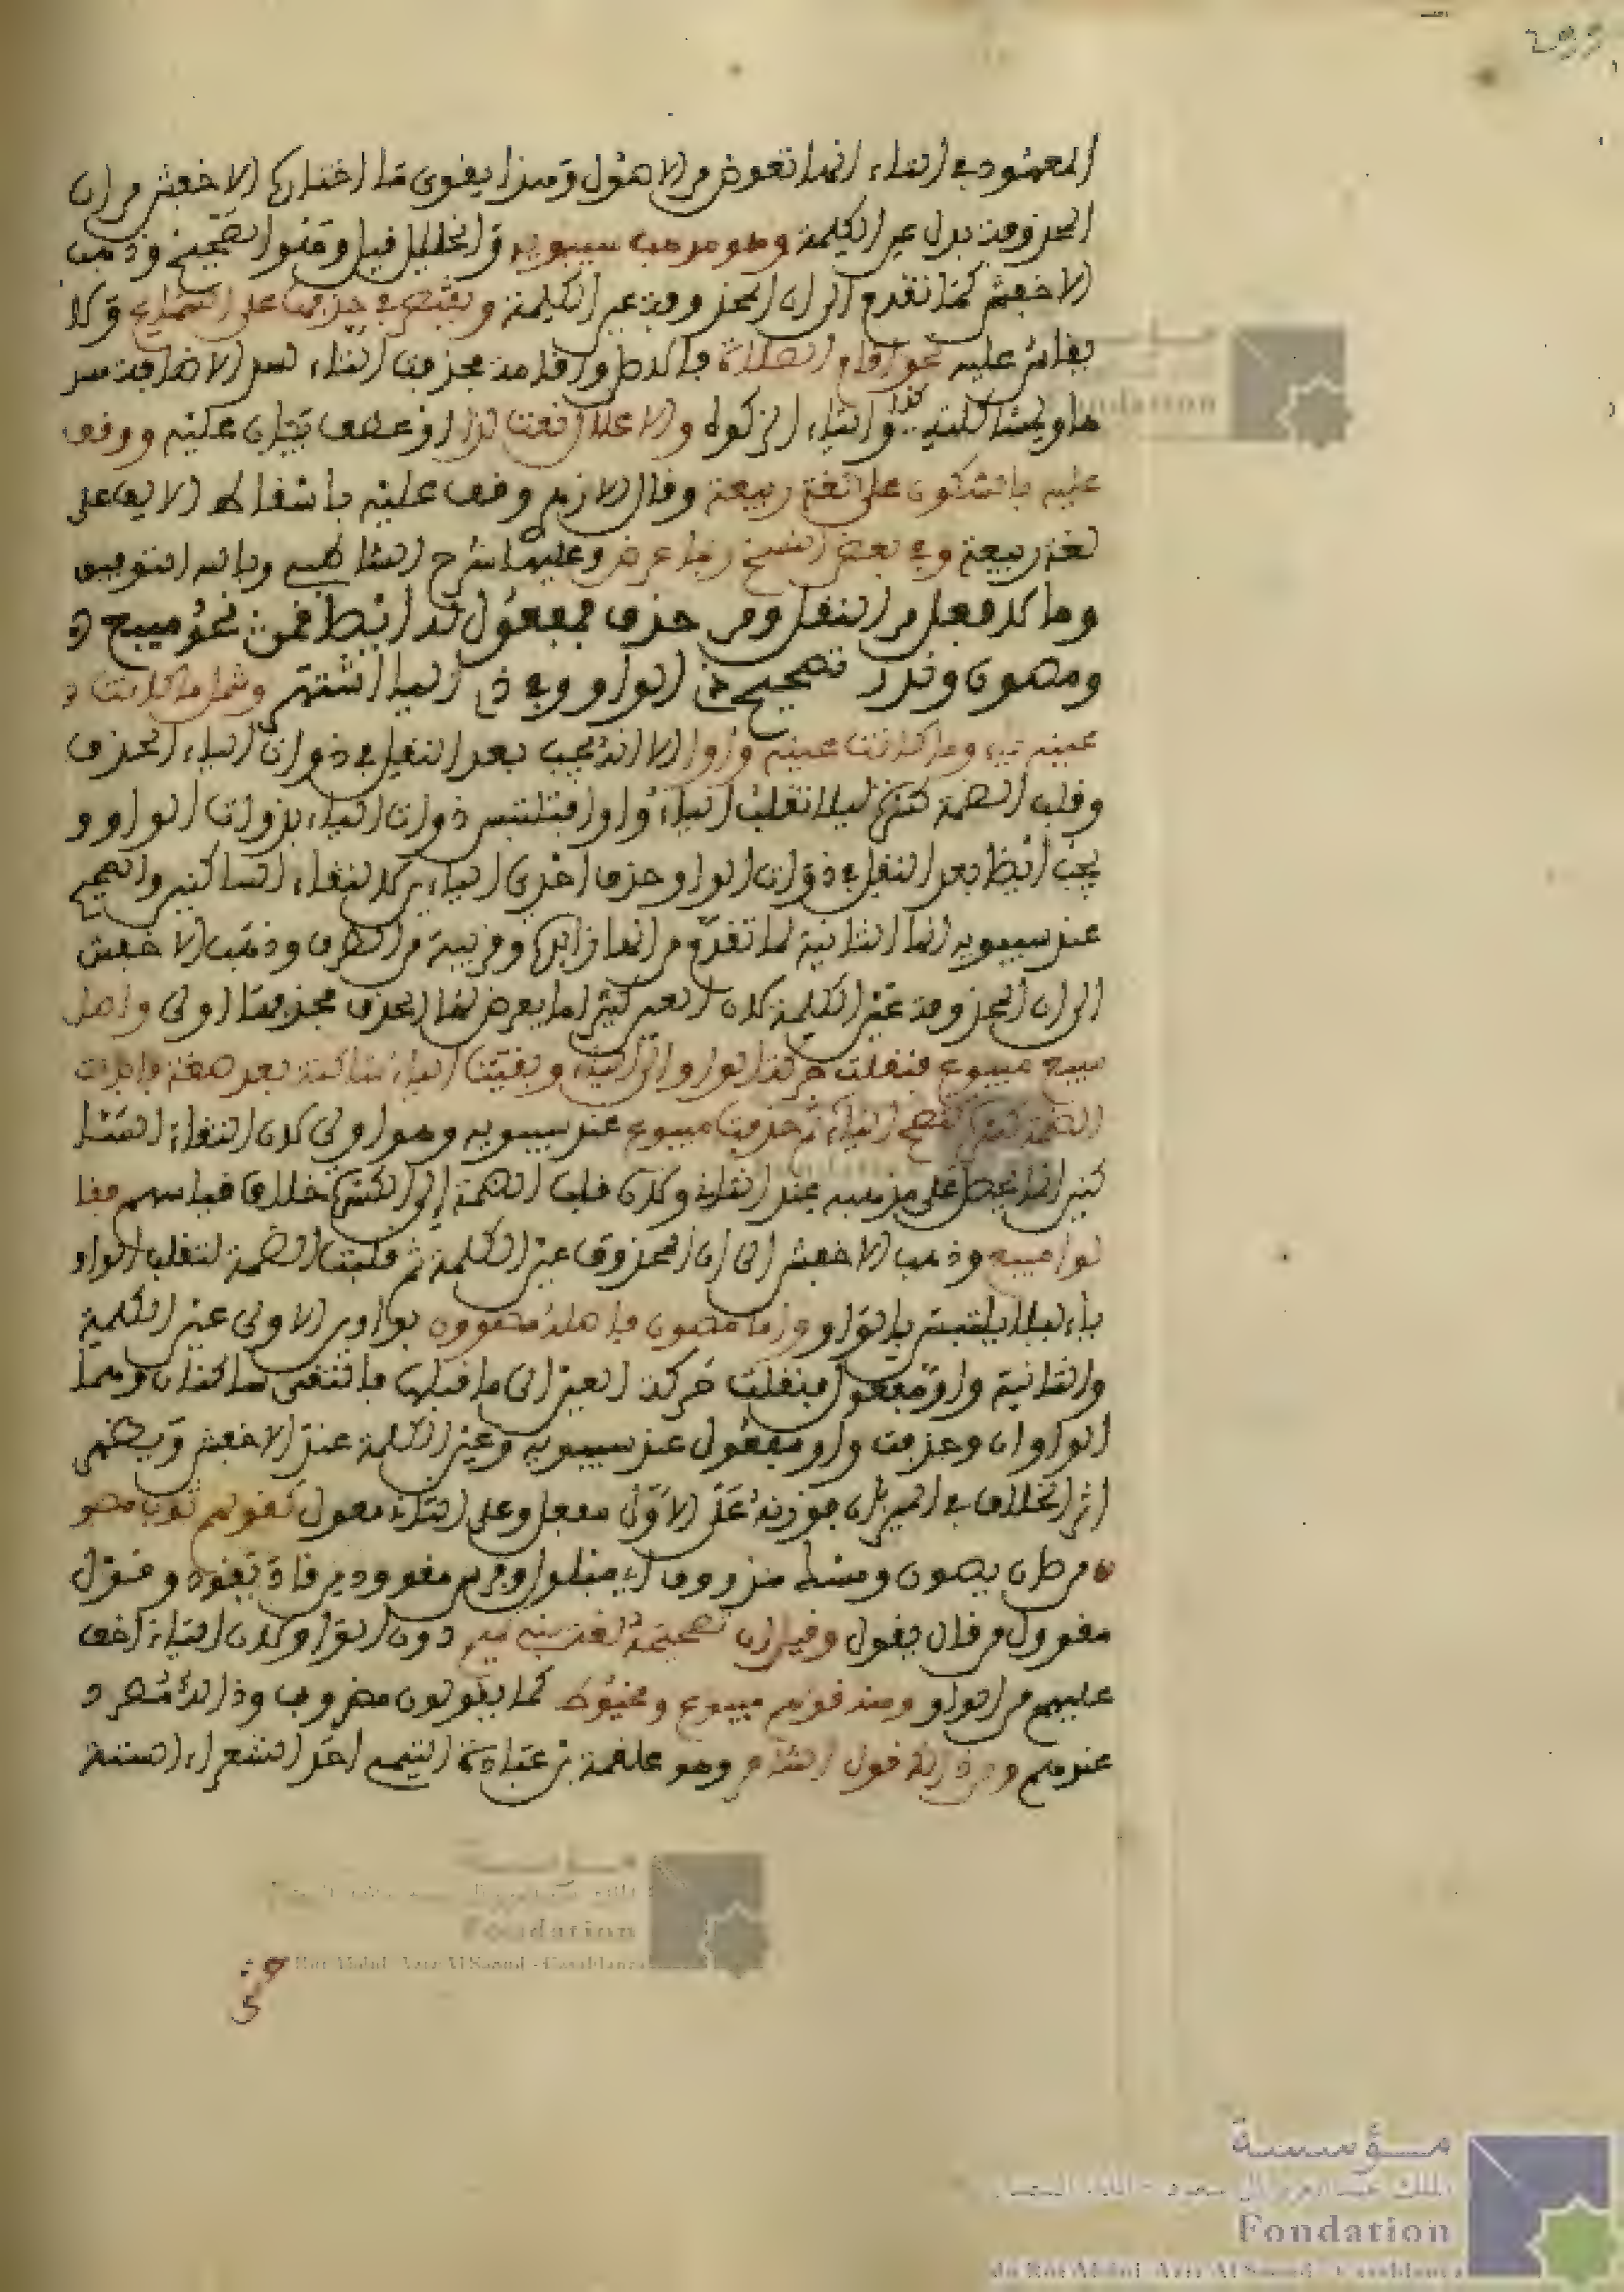 299
المعهود في التاء انها تعوض من الاصول وهذا يقوي ما اختاره الاخفش من ان
المحذوفة بدل عين الكلمة وهو مذهب سيبويه والخليل قيل وهو الصحيح وذهب
الاخفش كما تقدم الى ان المحذوفة عين الكلمة ويقتصر في حذفها على السماع ولا
يقاس عليه نحو اقام الصلاة فالاصل واقامة فحذفت التاء لسد الاضافة مسد
ها ولمشاكلته وايتاء الزكوة والاعلال فعت لذا او عطف بيان عليه ووقف
عليه بالسكون على لغة ربيعة وقال الازهري وقف عليه باسقاط الالف على
لغة ربيعة وفي بعض النسخ ربما عرض وعليها شرح الشاطبي وبالله التوفيق
وما لافعل من النقل ومن حذف فمفعول به ايضا قمن نحو مبيع
ومصون وندر تصحيح ذي الواو وفي ذي اليا اشتهر وشمل ما كانت
عينه ياء وما كانت عينه واوا الا انه يجب بعد النقل في ذوات الياء الحذف
وقلب الضمة كسرة ليلا تنقلب الياء واوا فتلتبس ذوات الياء بذوات الواو و
يجب ايضا بعد النقل في ذوات الواو حذف احدى الياءين لالتقاء الساكنين والصحيح
عند سيبويه انها الثانية لما تقدم من انها زايدة وقريبة من الطرف وذهب الاخفش
الى ان المحذوفة عين الكلمة لان العين كثيرا ما يعرض لها الحذف فحذفها اولى واصل
مبيع مبيوع فنقلت حركة الواو الى الياء وبقيت الياء ساكنة بعد ضمة فابدلت
الضمة كسرة لتصح الياء ثم حذفت مبيوع عند سيبويه وهو اولى لان التقاء السا
كنين انما يحصل على مذهبه عند الثانية ولان قلب الضمة الى الكسرة خلاف قياسهم فقا
لوا مبيع وذهب الاخفش الى ان المحذوف عين الكلمة ثم قلبت الضمة لتقلب الواو
ياء ليلا يلتبس بالواو واما مصون فاصله مصوون بواوين الاولى عين الكلمة
والثانية واو مفعول فنقلت حركة العين الى ما قبلها فالتقى ساكنان وهما
الواوان وحذفت واو مفعول عند سيبويه وعين الكلمة عند الاخفش ويظهر
اثر الخلاف في الميزان فوزنه على الاول مفعل وعلى الثاني مفول كقولهم ثوب مصو
ن من صان يصون ومسك مذووف اي مبلول وفرس مقوود من قاد يقود وقول
مقوول من قال يقول وقيل ان تصحيحه لغة بني تميم دون الواو لان الياء اخف
عليهم من الواو ومنه قولهم مبيوع ومخيوط كما يقولون مضروب وذلك مطرد
عندهم ومن ذلك قول الشاعر وهو علقمة بن عبادة التيمي احد الشعراء الستة
مؤسسة
Fondation
du Roi Abdul-Aziz Al Saoud - Casablanca